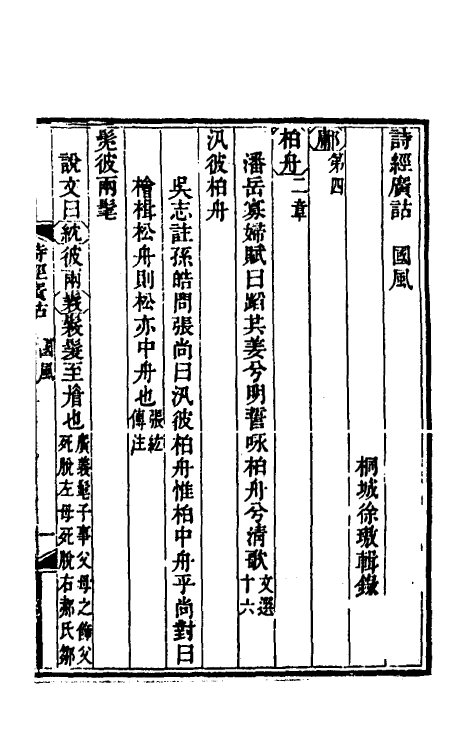 詩經廣詁　國風
桐城徐璈輯錄
鄘第四
柏舟二章
潘岳寡婦賦曰蹈共姜兮明誓咏柏舟兮淸歌文選十六
汎彼柏舟
吳志註孫皓問張尚曰汎彼柏舟惟柏中舟乎尚對曰
檜楫松舟則松亦中舟也張紘傳注
髧彼兩髦
說文曰紞彼兩髳髳髮至眉也廣義髦子事父母之飾父死脫左母死脫右郝氏鄒
詩經廣詁
國風
一